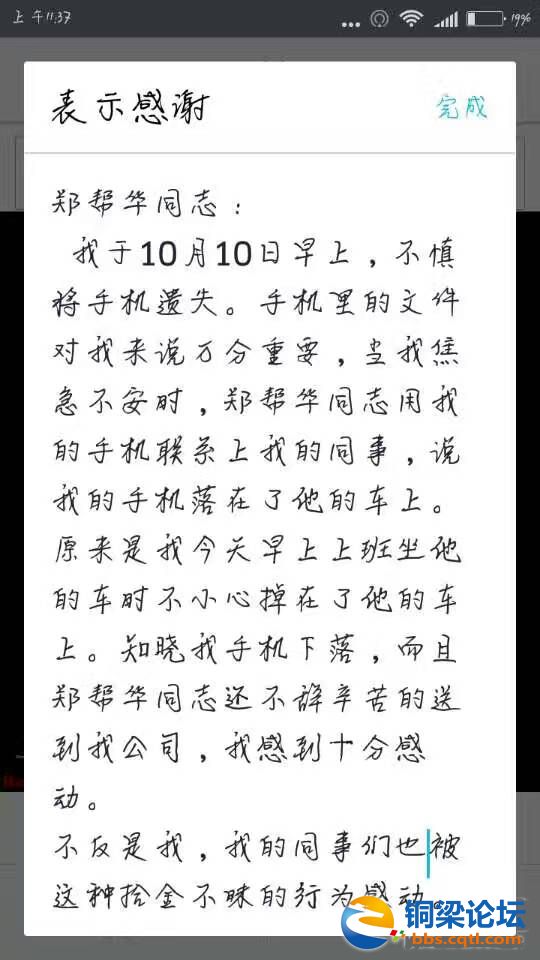 上午11:37
19%
表示感谢
完成
郑帮华同志：
我于10月10日早上，不慎
将手机遗失。手机里的文件
对我来说万分重要，当我焦
急不安时，郑帮华同志用我
的手机联系上我的同事，说
我的手机落在了他的车上。
原来是我今天早上上班坐他
的车时不小心掉在了他的车
上。知晓我手机下落，而且
郑帮华同志还不辞辛苦的送
到我公司，我感到十分感
动。
不反是我，我的同事们也被
这种拾金不昧的行为感动。
铜梁论坛
bbs.cqtl.com